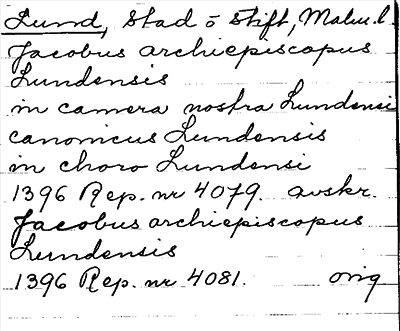 Lund, Stad o Stift, Malm.l.
Jacobus archiepiscopus
Lundensis
in camera nostra Lundensi
canonicus Lundensis
in choro Lundensi
1396 Rep. nr 4079. avskr.
Jacobus archiepiscopus
Lundensis
1396 Rep. nr 4081. orig